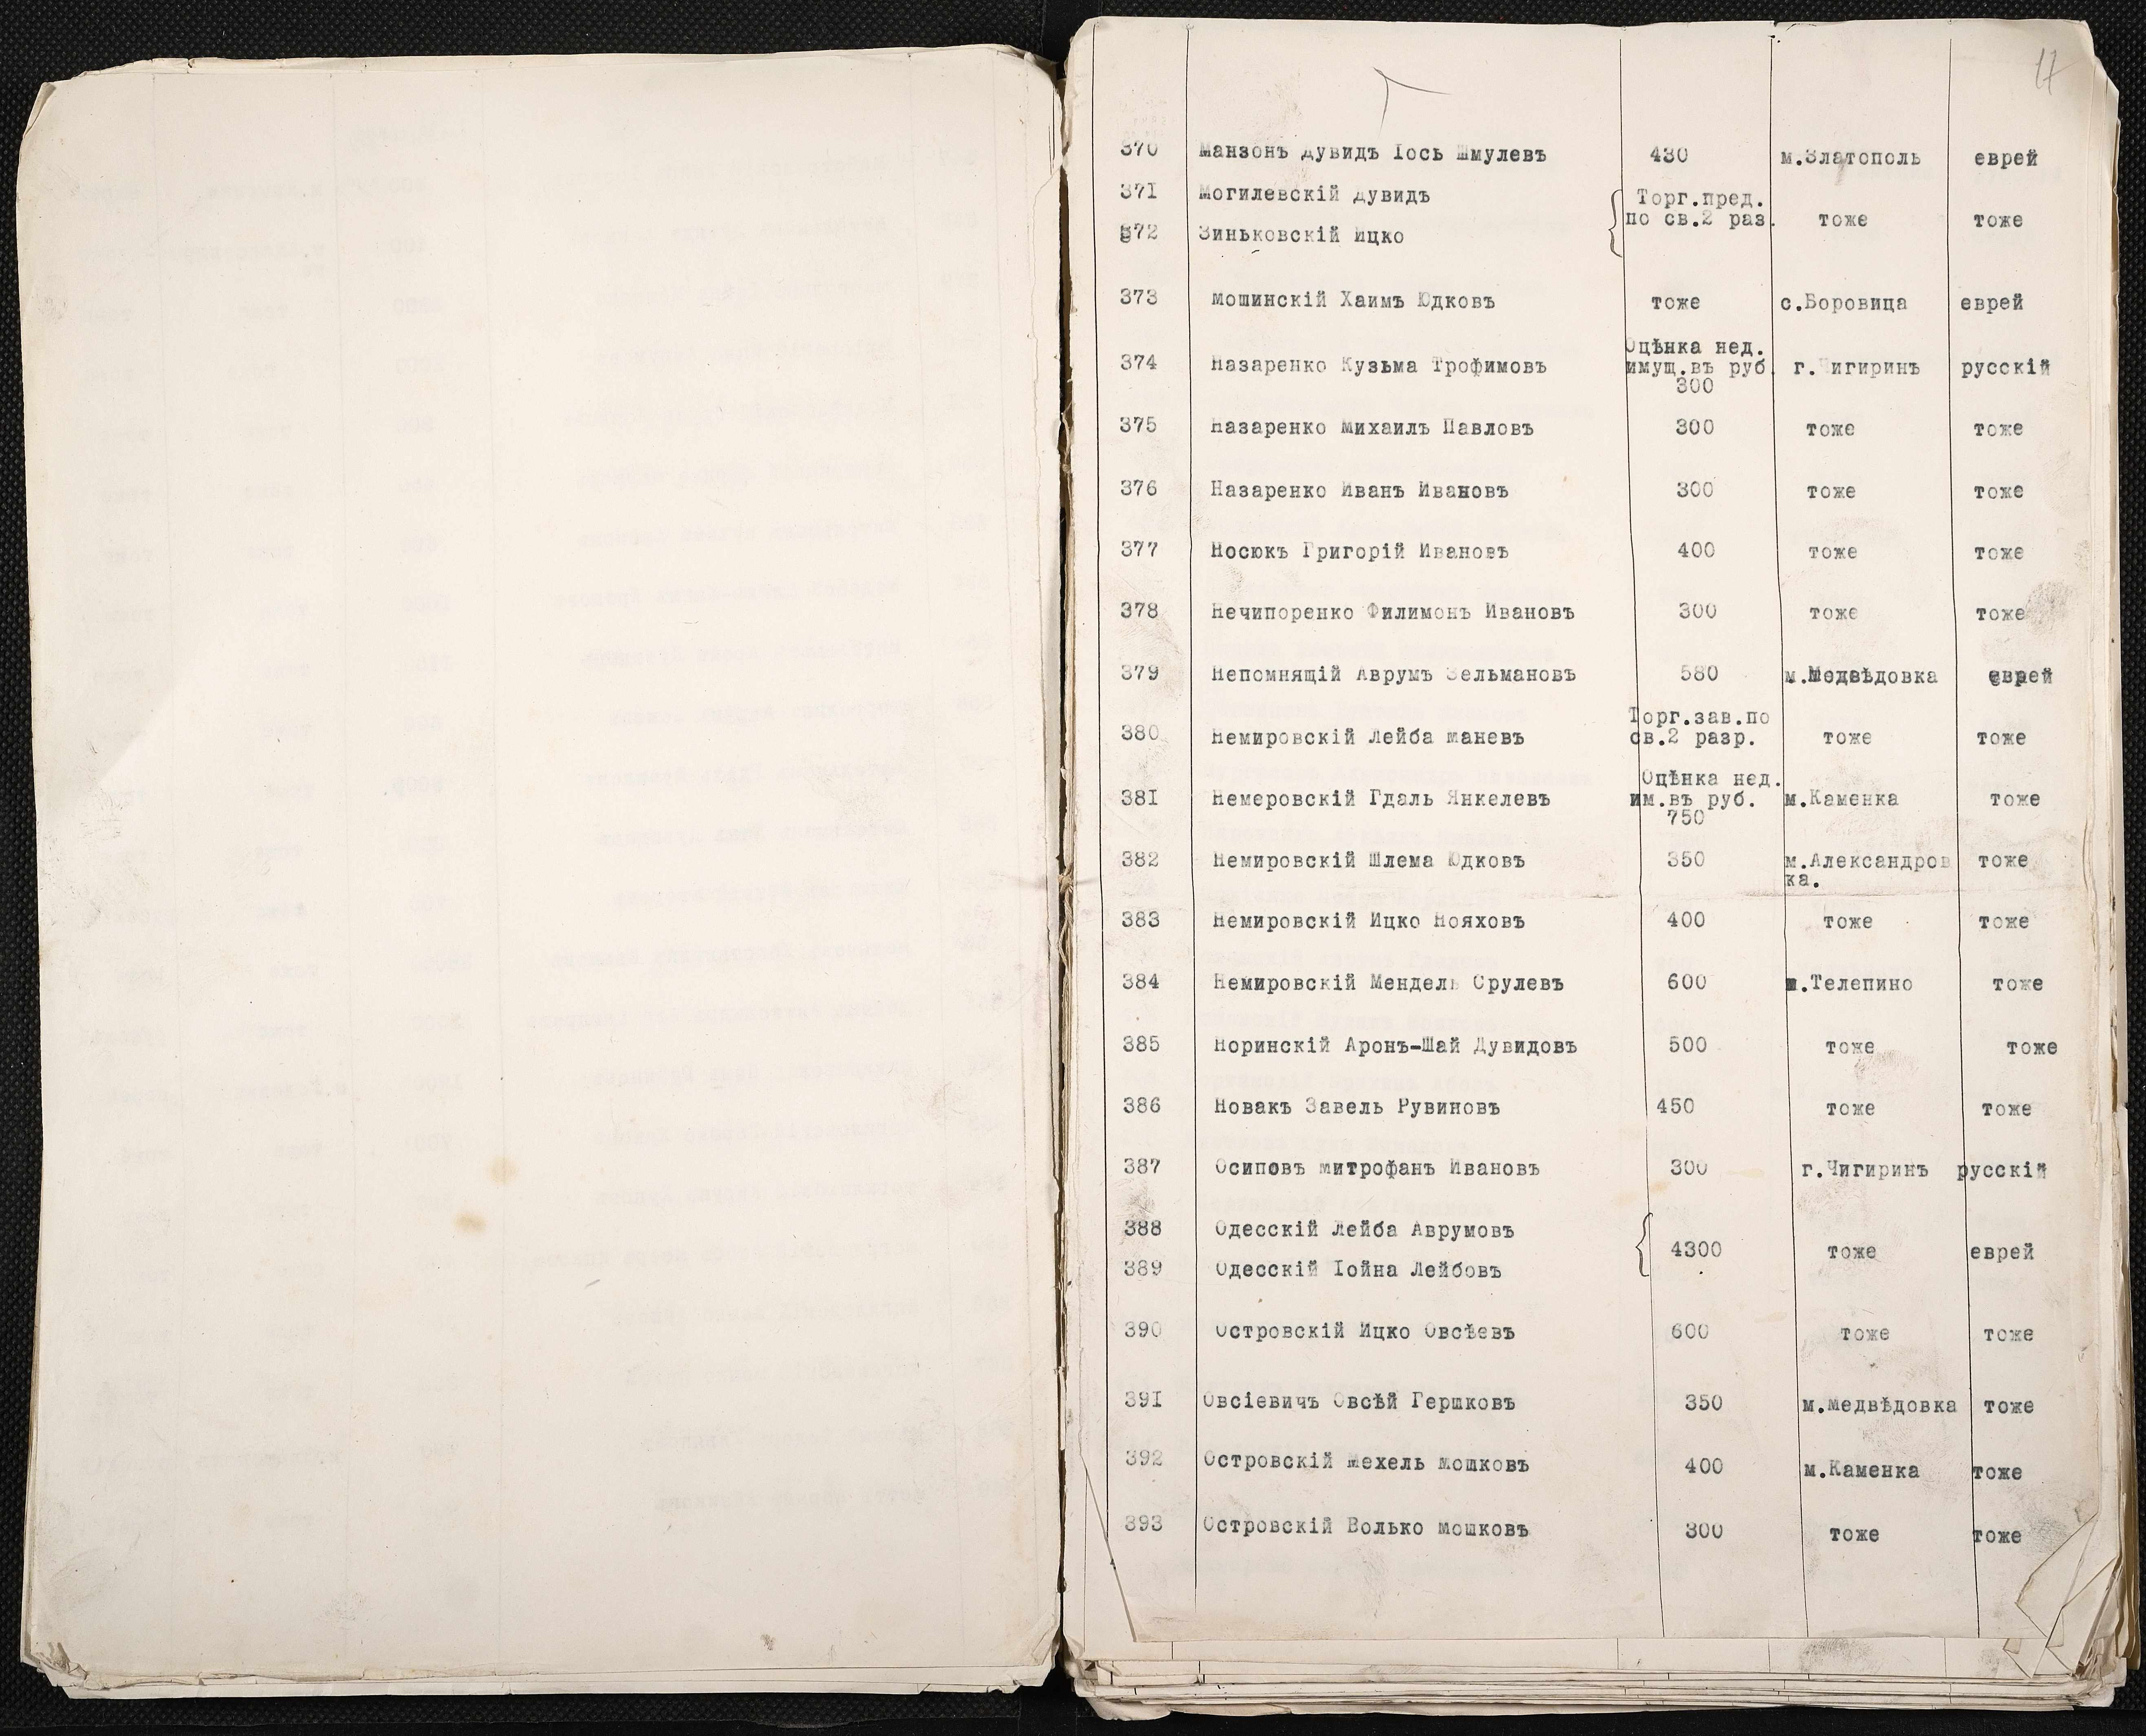 17
370 Манзонъ Дувидъ Іось Шмулевъ 430 м.Златополь еврей
371 Могилевскій Дувидъ
Торг.пред.
по св.2 раз. тоже тоже
372 Зиньковскій Ицко
373 Мошинскій Хаимъ Юдковъ тоже с.Боровица еврей
Оцѣнка нед.
374 Назаренко Кузьма Трофимовъ имущ.въ руб. г.Чигиринъ русскій
300
375 Назаренко Михаилъ Павловъ 300 тоже тоже
376 Назаренко Иванъ Ивановъ 300 тоже тоже
377 Носюкъ Григорій Ивановъ 400 тоже тоже
378 Нечипоренко Филимонъ Ивановъ 300 тоже тоже
379 Непомнящій Аврумъ Зельмановъ 580 м.Медвѣдовка еврей
Торг.зав.по
380 Немировскій Лейба Маневъ св.2 разр. тоже тоже
Оцѣнка нед.
381 Немеровскій Гдаль Янкелевъ им.въ руб. м.Каменка тоже
750
382 Немировскій Шлема Юдковъ 350 м.Александров тоже
ка.
383 Немировскій Ицко Нояховъ 400 тоже тоже
384 Немировскій Мендель Срулевъ 600 м.Телепино тоже
385 Норинскій Аронъ-Шай Дувидовъ 500 тоже тоже
386 Новакъ Завель Рувиновъ 450 тоже тоже
387 Осиповъ Митрофанъ Ивановъ 300 г.Чигиринъ русскій
388 Одесскій Лейба Аврумовъ
4300 тоже еврей
389 Одесскій Іойна Лейбовъ
390 Островскій Ицко Овсѣевъ 600 тоже тоже
391 Овсіевичъ Овсѣй Гершковъ 350 м.Медвѣдовка тоже
392 Островскій Мехель Мошковъ 400 м.Каменка тоже
393 Островскій Волько Мошковъ 300 тоже тоже